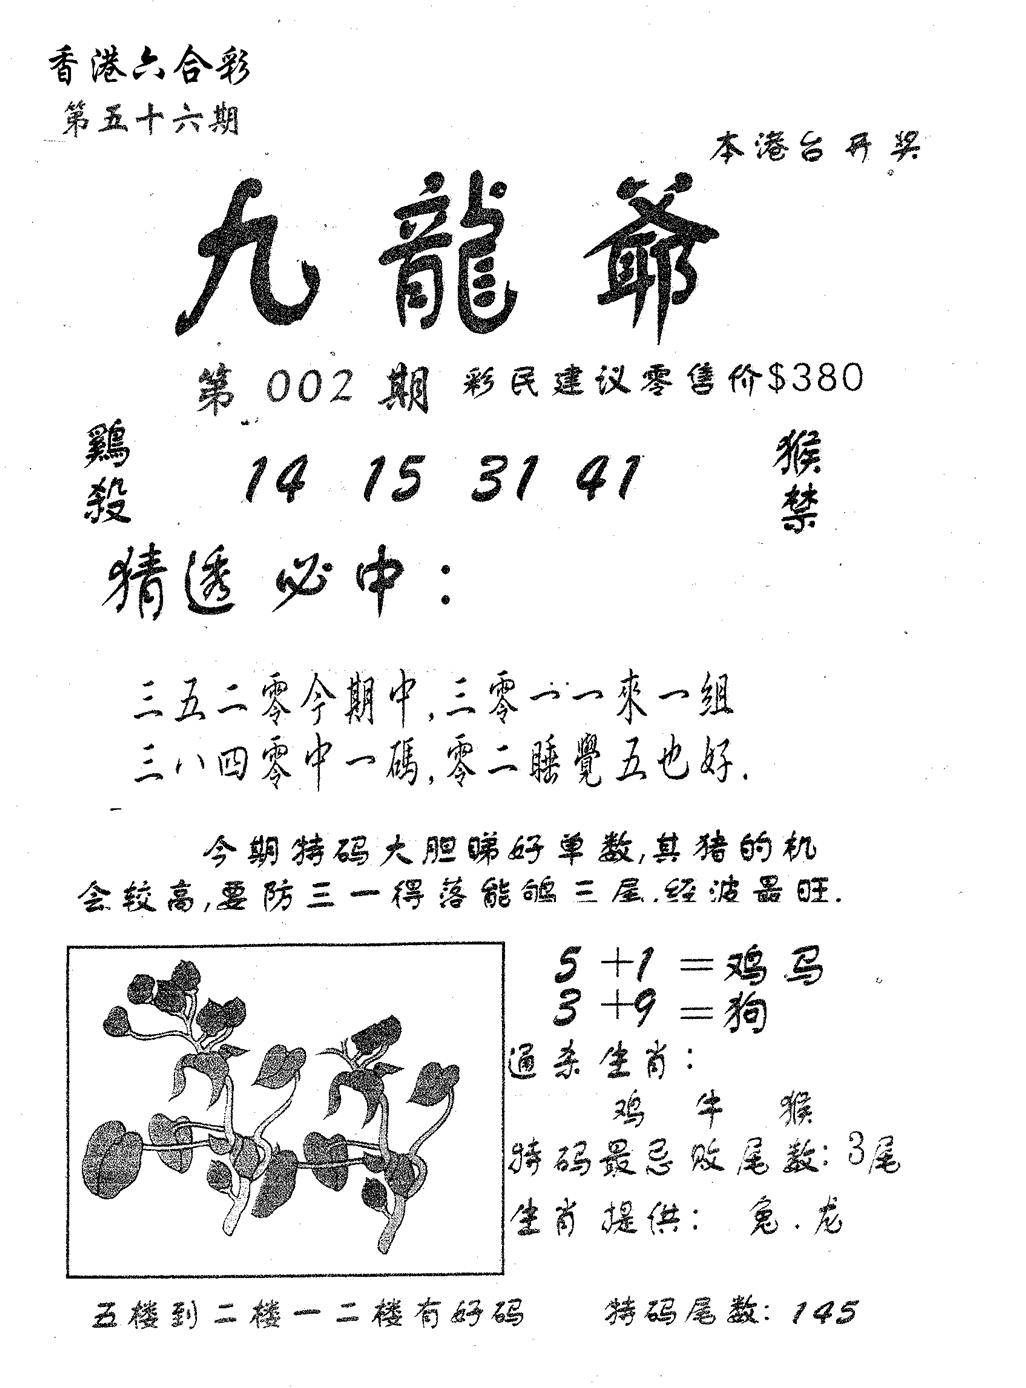 香港六合彩
第五十六期
本港台开奖
九龍爺
第 002 期 彩民建议零售价$380
鷄殺
14 15 31 41
猴禁
猜透必中：
三五二零今期中,三零一一來一組
三八四零中一碼,零二睡覺五也好.
今期特码大胆睇好单数,其猪的机
会较高,要防三一得落能鴝三尾.经波最旺.
5+1=鸡马
3+9=狗
通杀生肖：
鸡 牛 猴
特码最忌败尾数：3尾
生肖提供： 兔.龙
五楼到二楼一二楼有好码
特码尾数：145